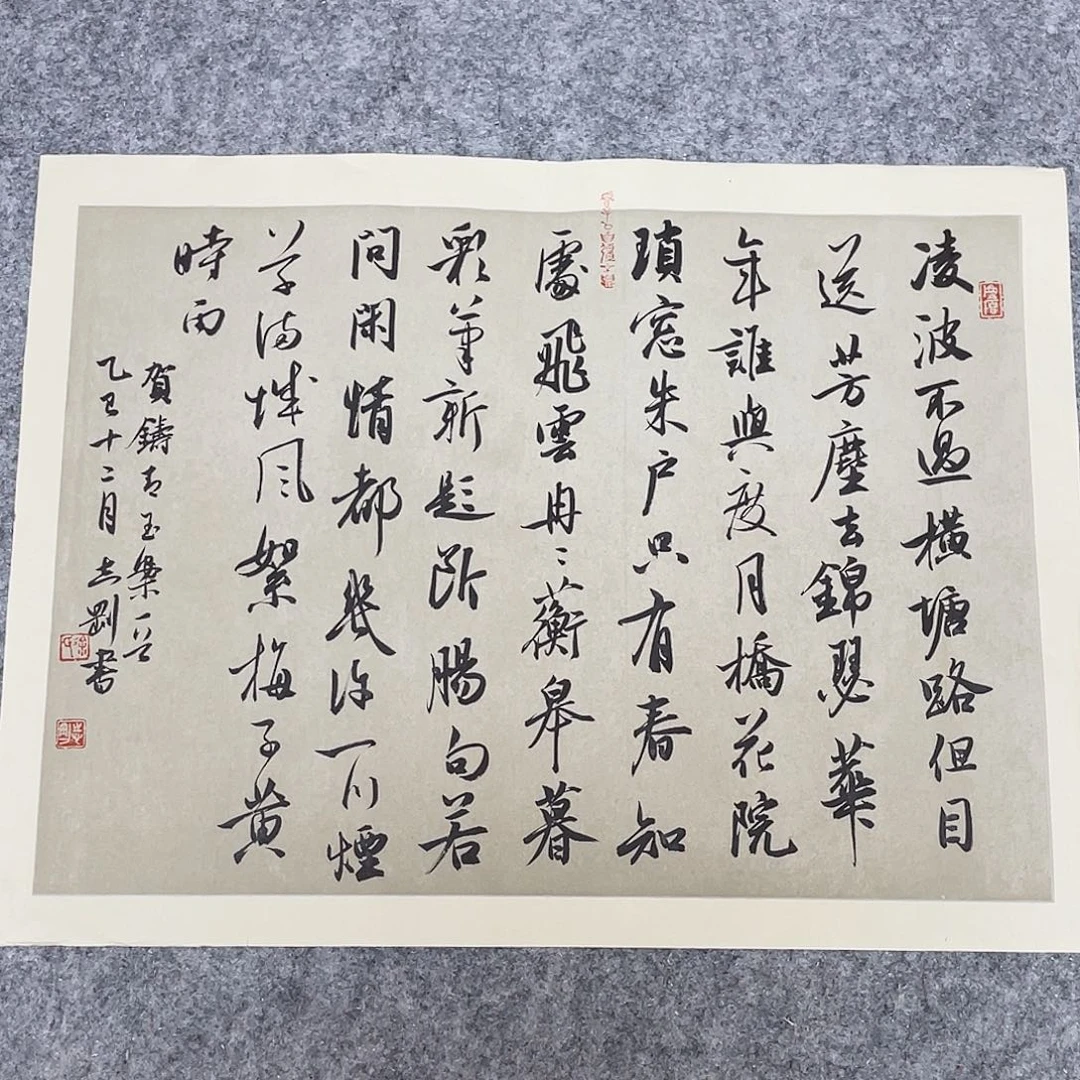 凌波不過橫塘路但目
送芳塵去錦瑟華
年誰與度月橋花院
瑣窓朱户只有春知
處飛雲冉〻蘅皋暮
彩筆新題斷腸句若
問閑情都幾許一川煙
草滿城風絮梅子黄
時雨
賀鑄青玉案一首
乙巳十二月志剛書